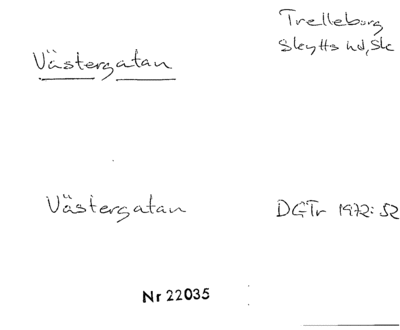 Trelleborg
Skytts hd, Sk
Västergatan
Västergatan
DGTr 1972:52
Nr 22035